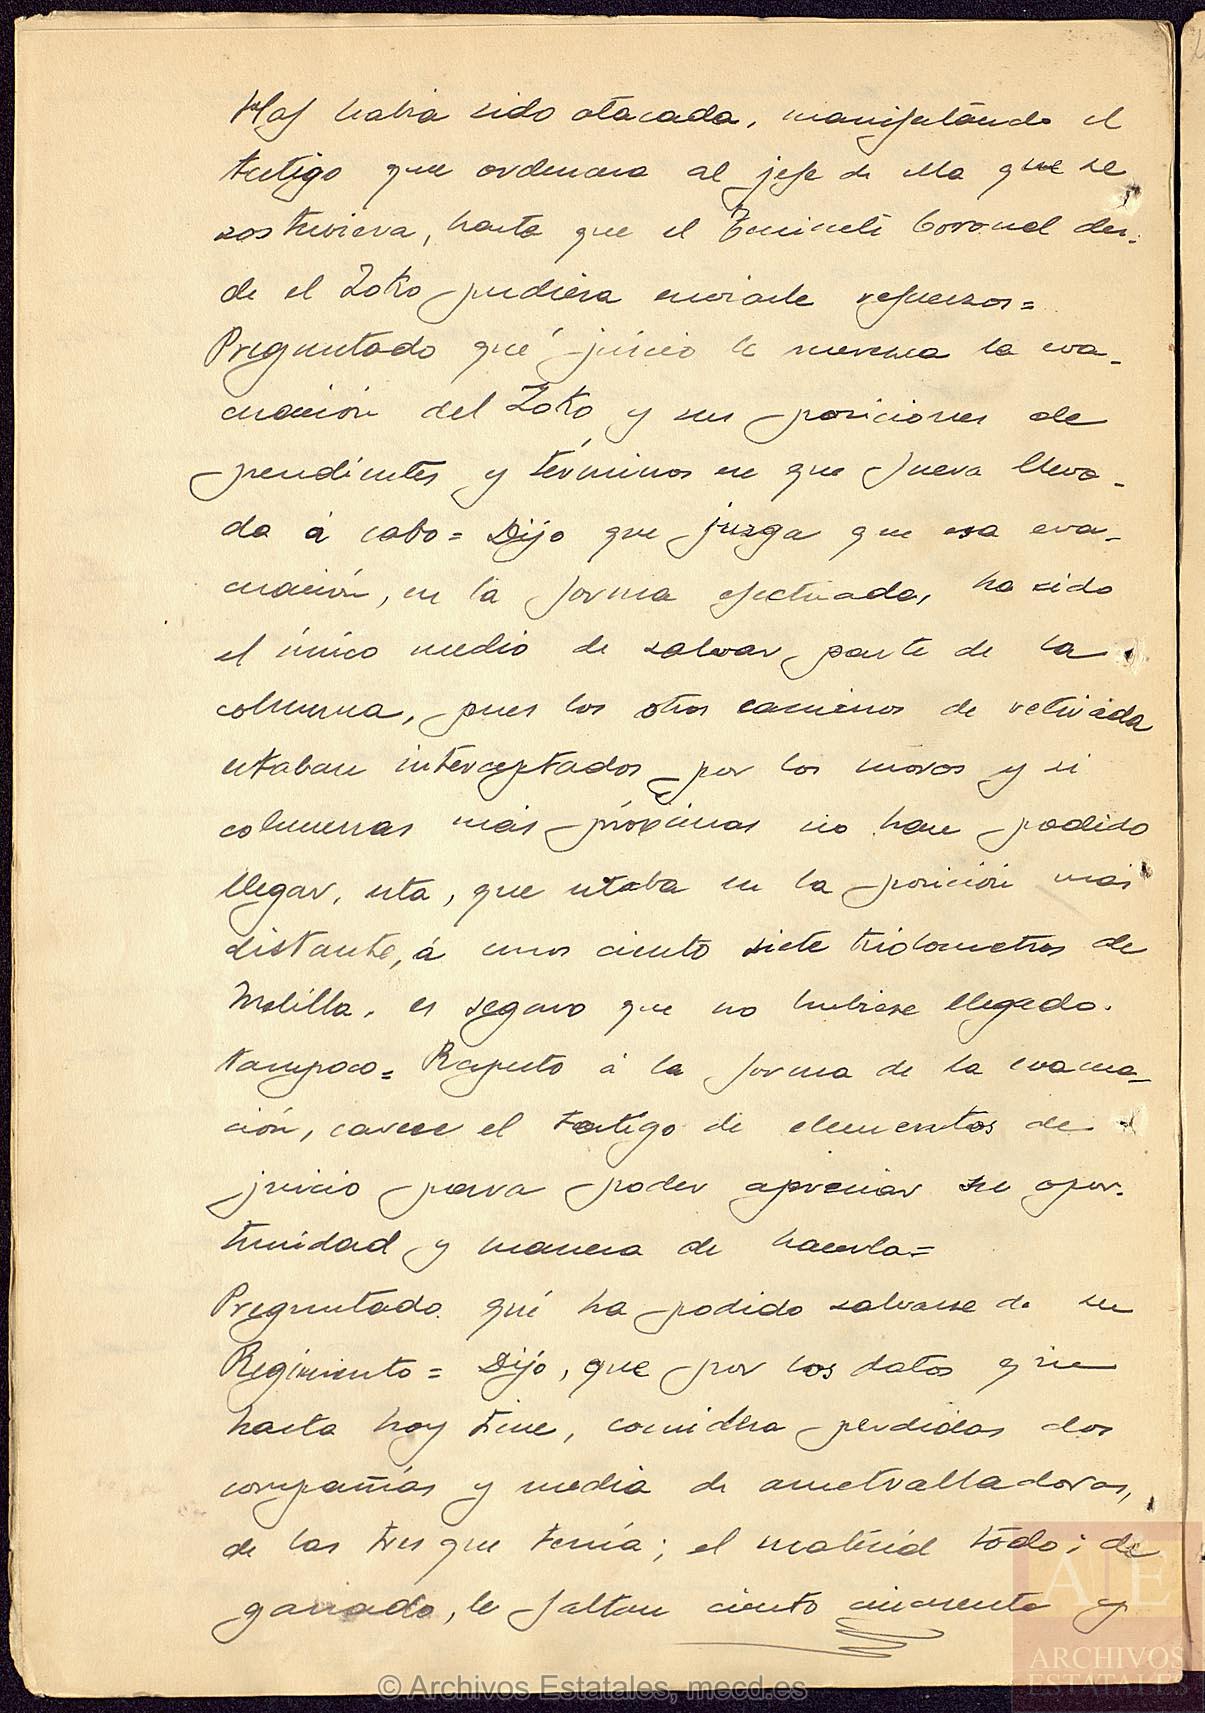 Haf había sido atacada, manifestándo el
testigo que ordenara al jefe de ella que se
sostuviera, hasta que el Teniente Coronel des-
de el Zoko pudiera enviarle refuerzos=
Preguntado qué juicio le merezca la eva-
cuación del Zoko y sus posiciones de
pendientes y términos en que fuera lleva-
da á cabo= Dijo que juzga que esa eva-
cuación, en la forma efectuada, ha sido
el único medio de salvar parte de la
columna, pues los otros caminos de retirada
estaban interceptados por los moros y si
columnas más próximas no han podido
llegar, esta, que estaba en la posición más
distante, á unos ciento siete kilometros de
Melilla, es seguro que no hubiese llegado
tampoco= Respecto á la forma de la evacua-
ción, carece el testigo de elementos de
juicio para poder apreciar su opor-
tunidad y manera de hacerla=
Preguntado qué ha podido salvarse de su
Regimiento= Dijo, que por los datos que
hasta hoy tiene, considera perdidas dos
compañías y media de ametralladoras,
de las tres que tenía; el material todo; de
ganado, le faltan ciento cincuenta y
© Archivos Estatales, mecd.es
AE
ARCHIVOS
ESTATALES